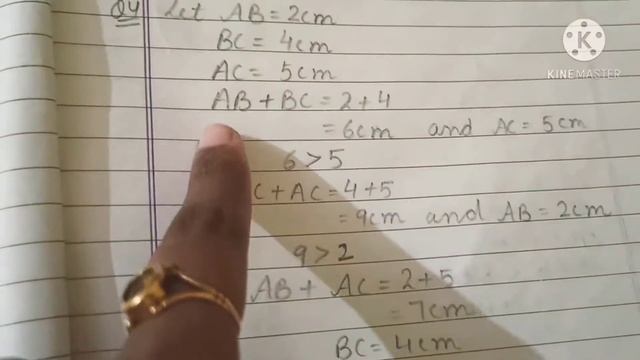 Q4 Let AB = 2cm
BC = 4cm
AC = 5cm
AB + BC = 2+4
= 6cm and AC = 5cm
6 > 5
C + AC = 4+5
= 9cm and AB = 2cm
9 > 2
AB + AC = 2+5
= 7cm
BC = 4cm
K
KINEMASTER